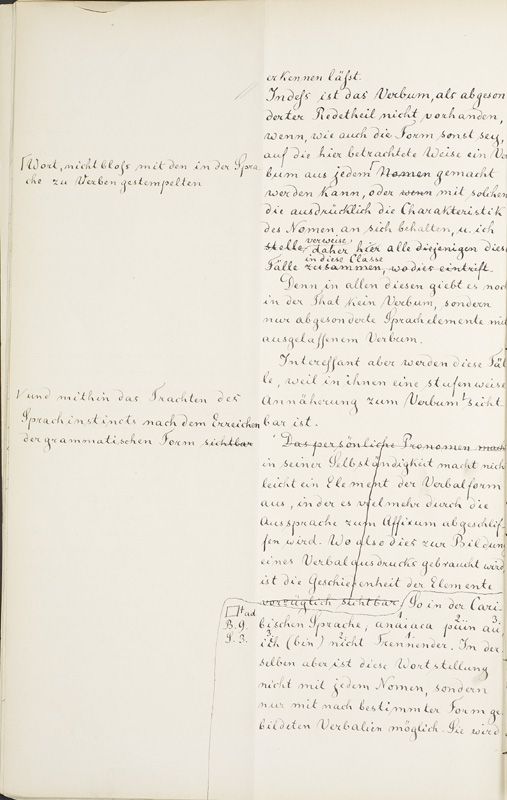 erkennen läſst.
Indeſs ist das Verbum, als abgeson
derter Redetheil nicht vorhanden,
wenn, wie auch die Form sonst sey,
auf die hier betrachtete Weise ein Ver
bum aus jedem Nomen gemacht
werden kann, oder wenn mit solchen
die ausdrücklich die Charakteristik
des Nomen an sich behalten, u. ich
stelle verweise daher hier alle diejenigen dies
in diese Classe
Fälle zusammen, wo dies eintrift.
Denn in allen diesen giebt es noch
in der That kein Verbum, sondern
nur abgesonderte Sprachelemente mit
ausgelaſsenem Verbum.
Intereſsant aber werden diese Fäl
le, weil in ihnen eine stufenweise
Annäherung zum Verbum sicht
bar ist.
Das persönliche Pronomen mach
in seiner Selbständigkeit macht nich
leicht ein Element der Verbalform
aus, in der es vielmehr durch die
Aussprache zum Affixum abgeschlif-
fen wird. Wo also dies zur Bildun
eines Verbalausdrucks gebraucht wird
ist die Geschiedenheit der Elemente
vorzüglich sichtbar. So in der Cari
bischen Sprache, anaiaca püin au,
ich (bin) nicht Trennender. In der
selben aber ist diese Wortstellung
nicht mit jedem Nomen, sondern
nur mit nach bestimmter Form ge
bildeten Verbalien möglich. Sie wird
Wort, nicht bloſs mit den in der Spra
che zu Verben gestempelten
und mithin das Trachten des
Sprachinstincts nach dem Erreichen
der grammatischen Form sichtbar
ad
B. 9.
S. 3.